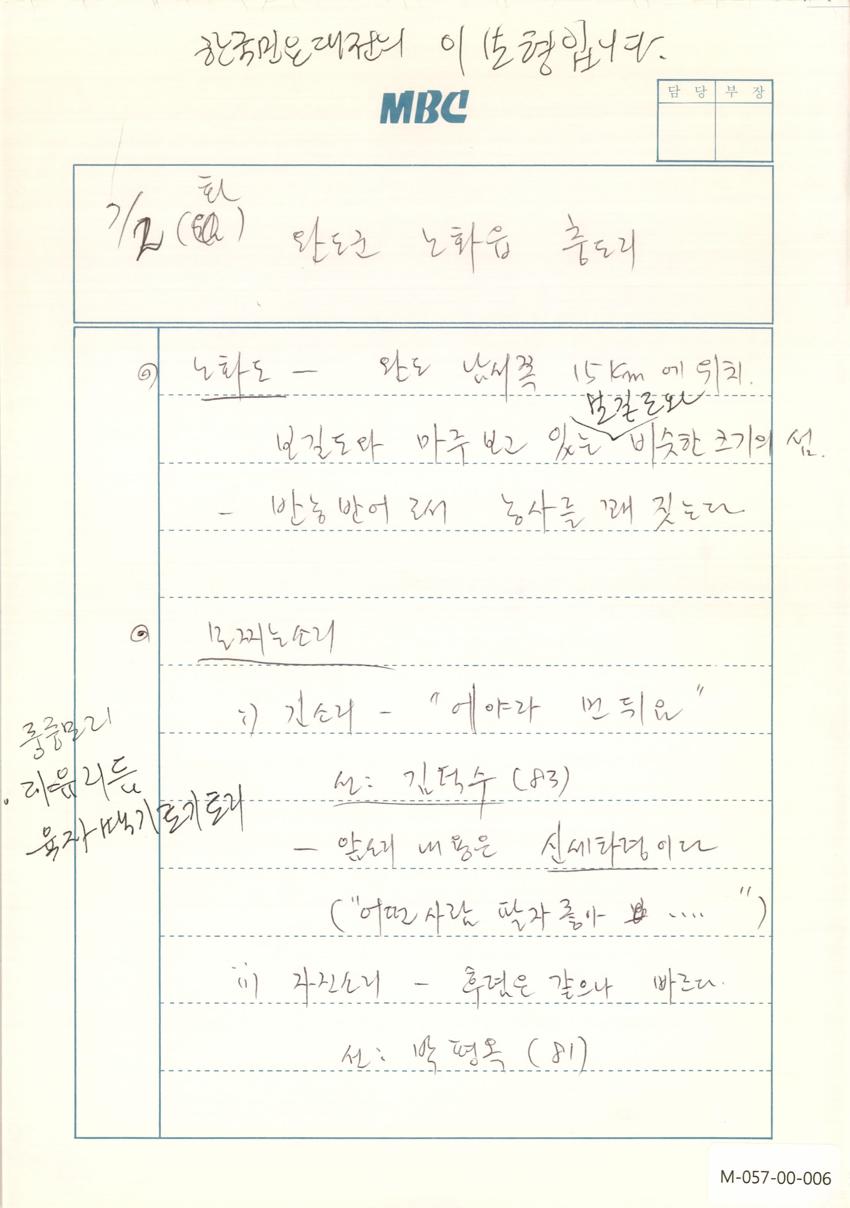 한국민요대전의 이보형입니다.
MBC
담 당 부 장
7/2 (화)
완도군 노화읍 충도리
① 노화도 - 완도 남서쪽 15km에 위치.
보길도와
보길도와 마주보고 있는 비슷한 크기의 섬.
- 반농반어로서 농사를 꽤 짓는다
② 모찌는소리
i) 긴소리 - "에야라 먼뒤요"
중중모리
선: 김덕수 (83)
육자배기토리
- 앞소리 내용은 신세타령이다
("어떤사람 팔자좋아 ....")
ii) 자진소리 - 후렴은 같으나 빠르다.
선: 박평옥 (81)
M-057-00-006